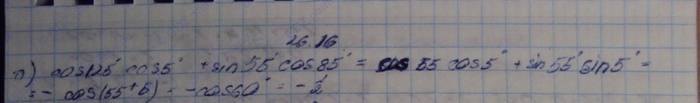 26.16
п) cos125° cos5° + sin55° cos85° = cos 55 cos5° + sin55° sin5° =
= - cos(55+5) = -cos60° = - 1/2